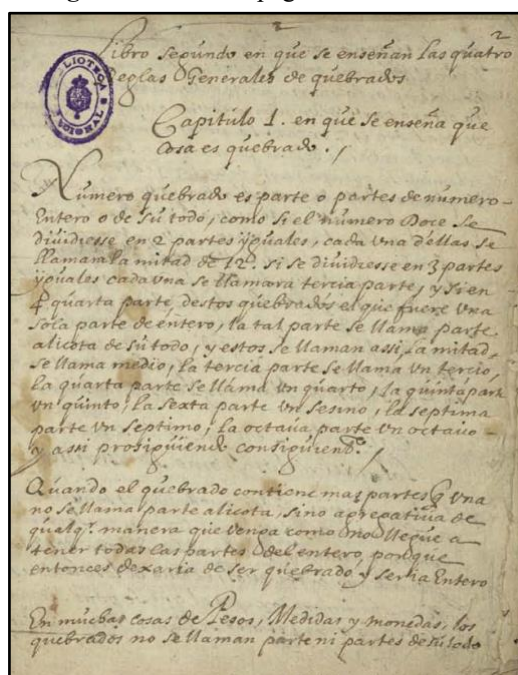 2
2
Libro segundo en que se enseñan las quatro
Reglas Generales de quebrados
Capitulo 1. en que se enseña que
cosa es quebrado.
Numero quebrado es parte o partes de numero
Entero o de su todo, como si el numero Doce se
diuidiesse en 2 partes yguales, cada vna dellas se
llamara la mitad de 12. si se diuidiesse en 3 partes
yguales cada vna se llamara tercia parte, y si en
4 quarta parte, destos quebrados el que fuere vna
sola parte de entero, la tal parte se llama parte
alicota de su todo, y estos se llaman assi, la mitad,
se llama medio, la tercia parte se llama vn tercio,
la quarta parte se llama vn quarto, la quinta parte
vn quinto, la sexta parte vn sesmo, la septima
parte vn septimo, la octaua parte vn octauo
y assi prosiguiendo
Quando el quebrado contiene mas partes q vna
no se llama parte alicota, sino agregatiua de
qualqr. manera que venga como no llegue a
tener todas las partes del entero, porque
entonces dexaria de ser quebrado y seria Entero
En muchas cosas de Pesos, Medidas y monedas, los
quebrados no se llaman parte ni partes de su todo